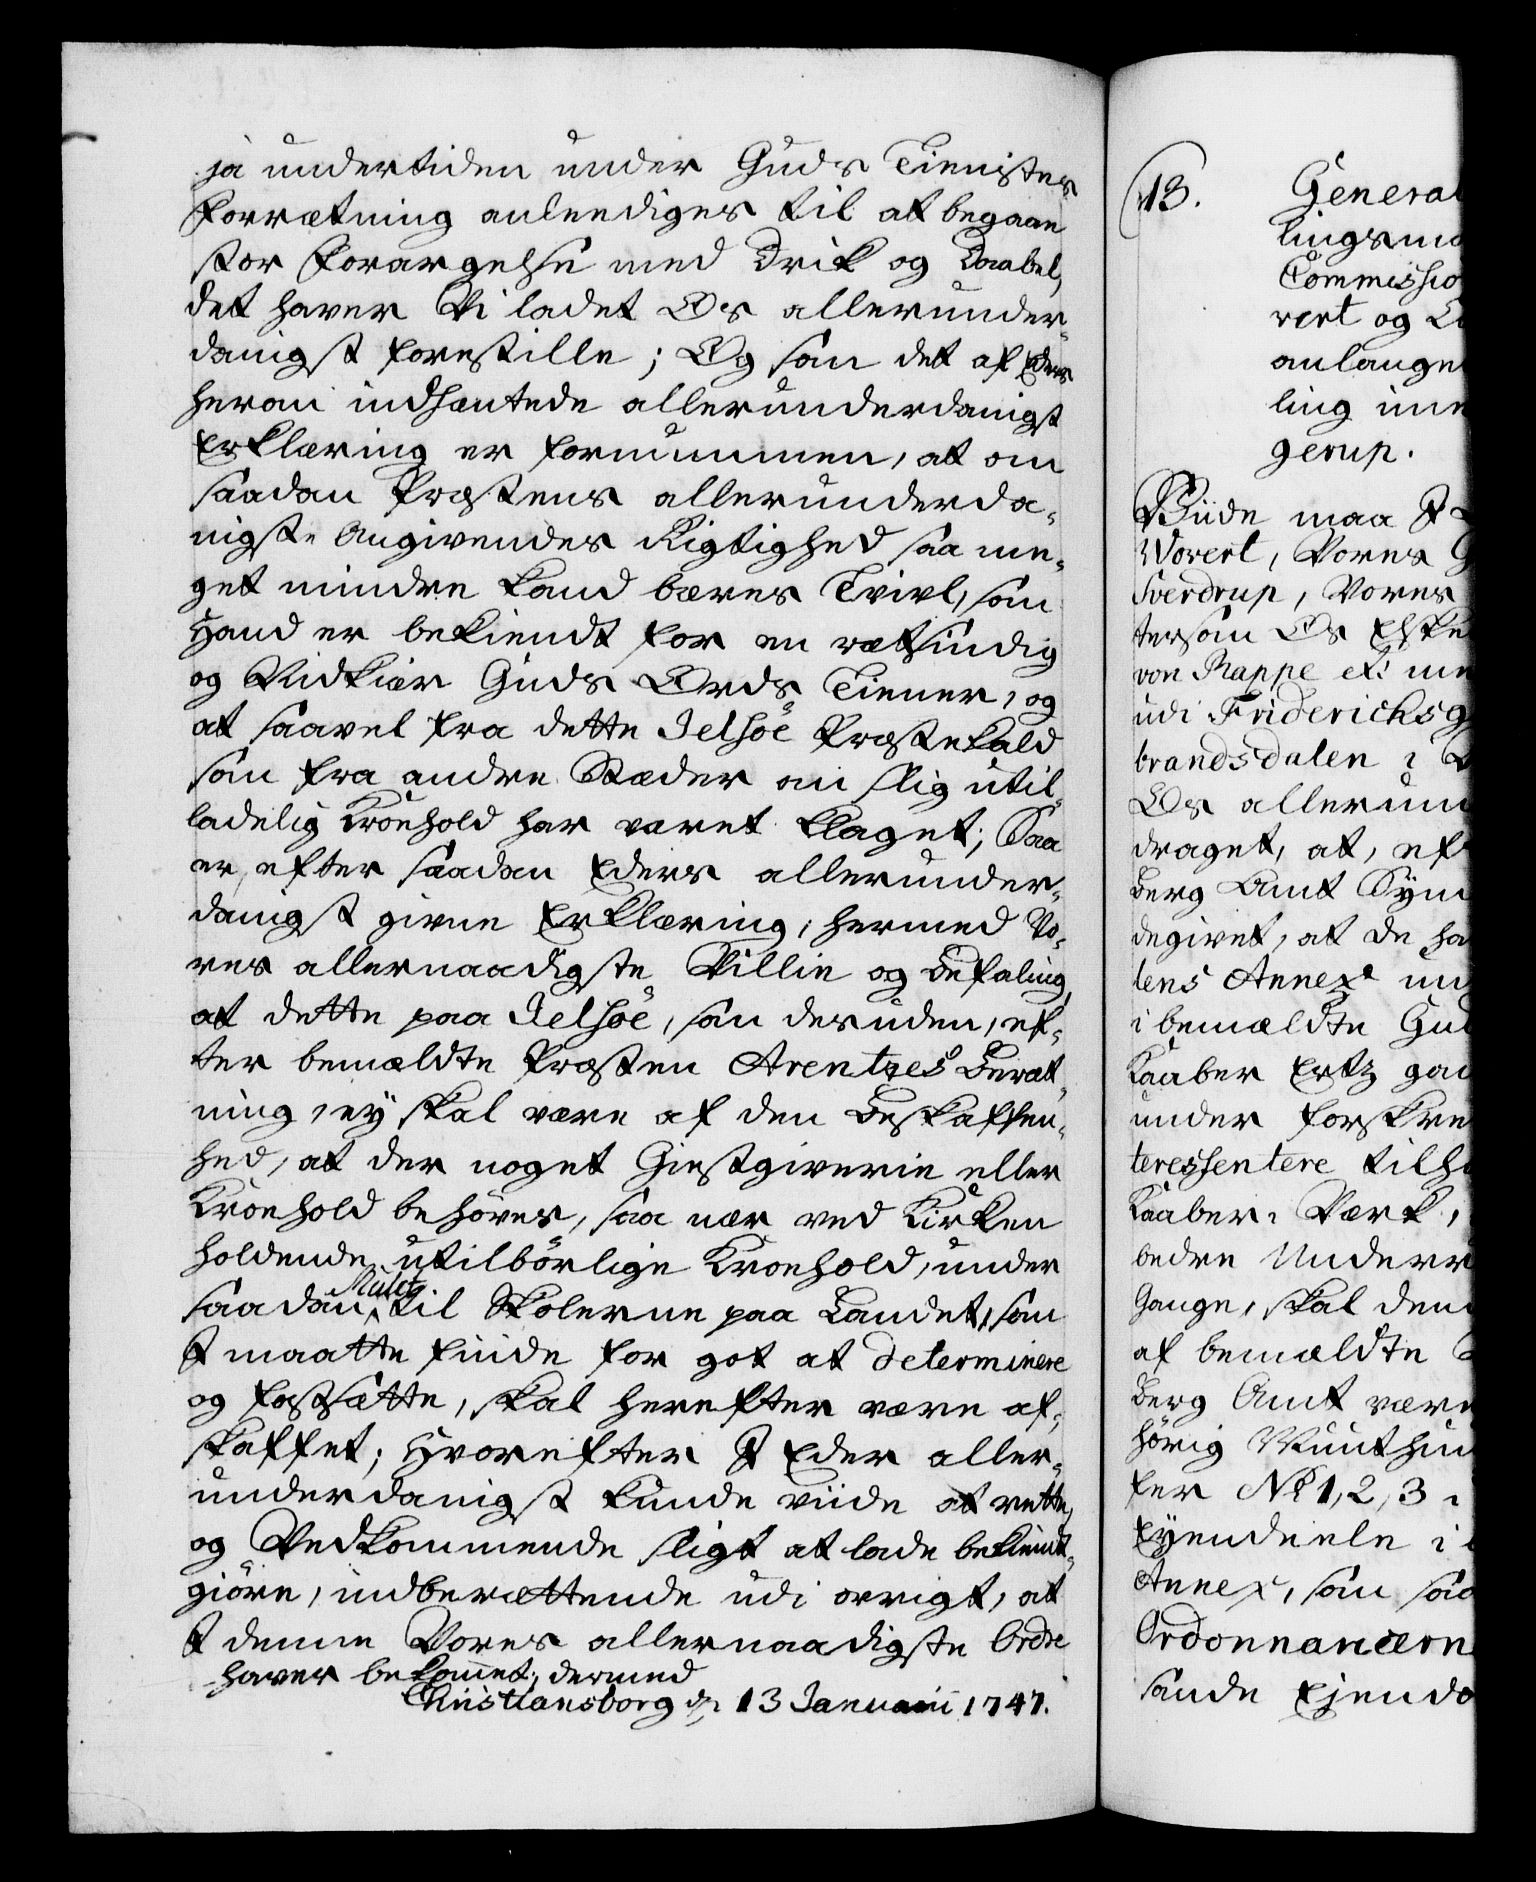 ja undertiden under Guds Tienistes
Forrætning anleediges til at begaae
stor Forargelse med Drik og Drabel,
det haver Vi ladet Os allerunder-
danigst forestille; Og som det af Eders
herom indhæntede allerunderdanigst
Erklæring er fornummen, at om
saadan Præstens allerunderda-
nigste Angivendes Rigtighed saa me-
get mindre kand bæres Tvivl, som
Hand er bekiendt for en retsindig
og Nidkier Guds Ords Tiener, og
at saavel fra dette Jelsöe Præstekald
som fra andre Stæder om slig util-
ladelig Kroehold har været klaget; Saa
er, efter saadan Eders allerunder-
danigst givne Erklæring, hermed Vo-
res allernaadigste Villie og Befaling,
at dette paa Jelsöe, som desuden, ef-
ter bemældte Præsten Arentzes Beræt-
ning, ey skal være af den Beskaffen-
hed, at der noget Giestgiverie eller
Kroehold behöves, saa nær ved Kirken
holdende utilbörlige Kroehold, under
saadan Mulct til Skolerne paa Landet, som
I maatte finde for got at determinere
og fastsætte, skal herefter være af-
skaffet; Hvorefter I Eder aller-
underdanigst kunde viide at rette,
og Vedkommende sligt at lade bekiendt-
giöre, indberættende udi övrigt, at
I denne Vores allernaadigste Ordre
haver bekommet, dermed
Christiansborg d. 13 Januarii 1747.
13. General
lingsma
Commissio
vert og
anlange
ling im
gerup.
Viide maa I
Wovert, Vores G
Sverdrup, Vores
tersom Os Elske
von Rappe etc: me
udi Friderichsg
brandsdalen i
Os allerun
draget, at, ef
berg Amt Syn
degivet, at de ha
lens Annex un
i bemældte Gul
Kaaber Ertz ga
under forskre
teressentere tilh
Kaaber-Værk,
bedre Underr
Gange, skal den
af bemældte
berg Amt være
hörig Muuthun
ter No 1, 2, 3
Eyendeele i
Annex, som saa
Ordonnancern
sande Ejendo